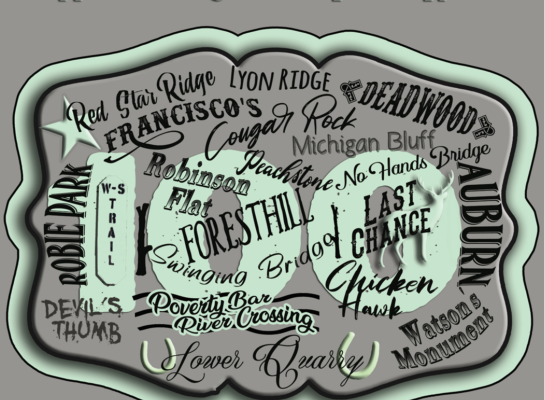 Red Star Ridge
LYON RIDGE
DEADWOOD
FRANCISCO'S
Cougar Rock
Michigan Bluff
Robinson
Flat
Peachstone
No Hands Bridge
ROBIE PARK
W-S
TRAIL
100
FORESTHILL
LAST
CHANCE
AUBURN
Swinging Bridge
Chicken
Hawk
DEVIL'S
THUMB
Poverty Bar
River Crossing
Watson's
Monument
Lower Quarry